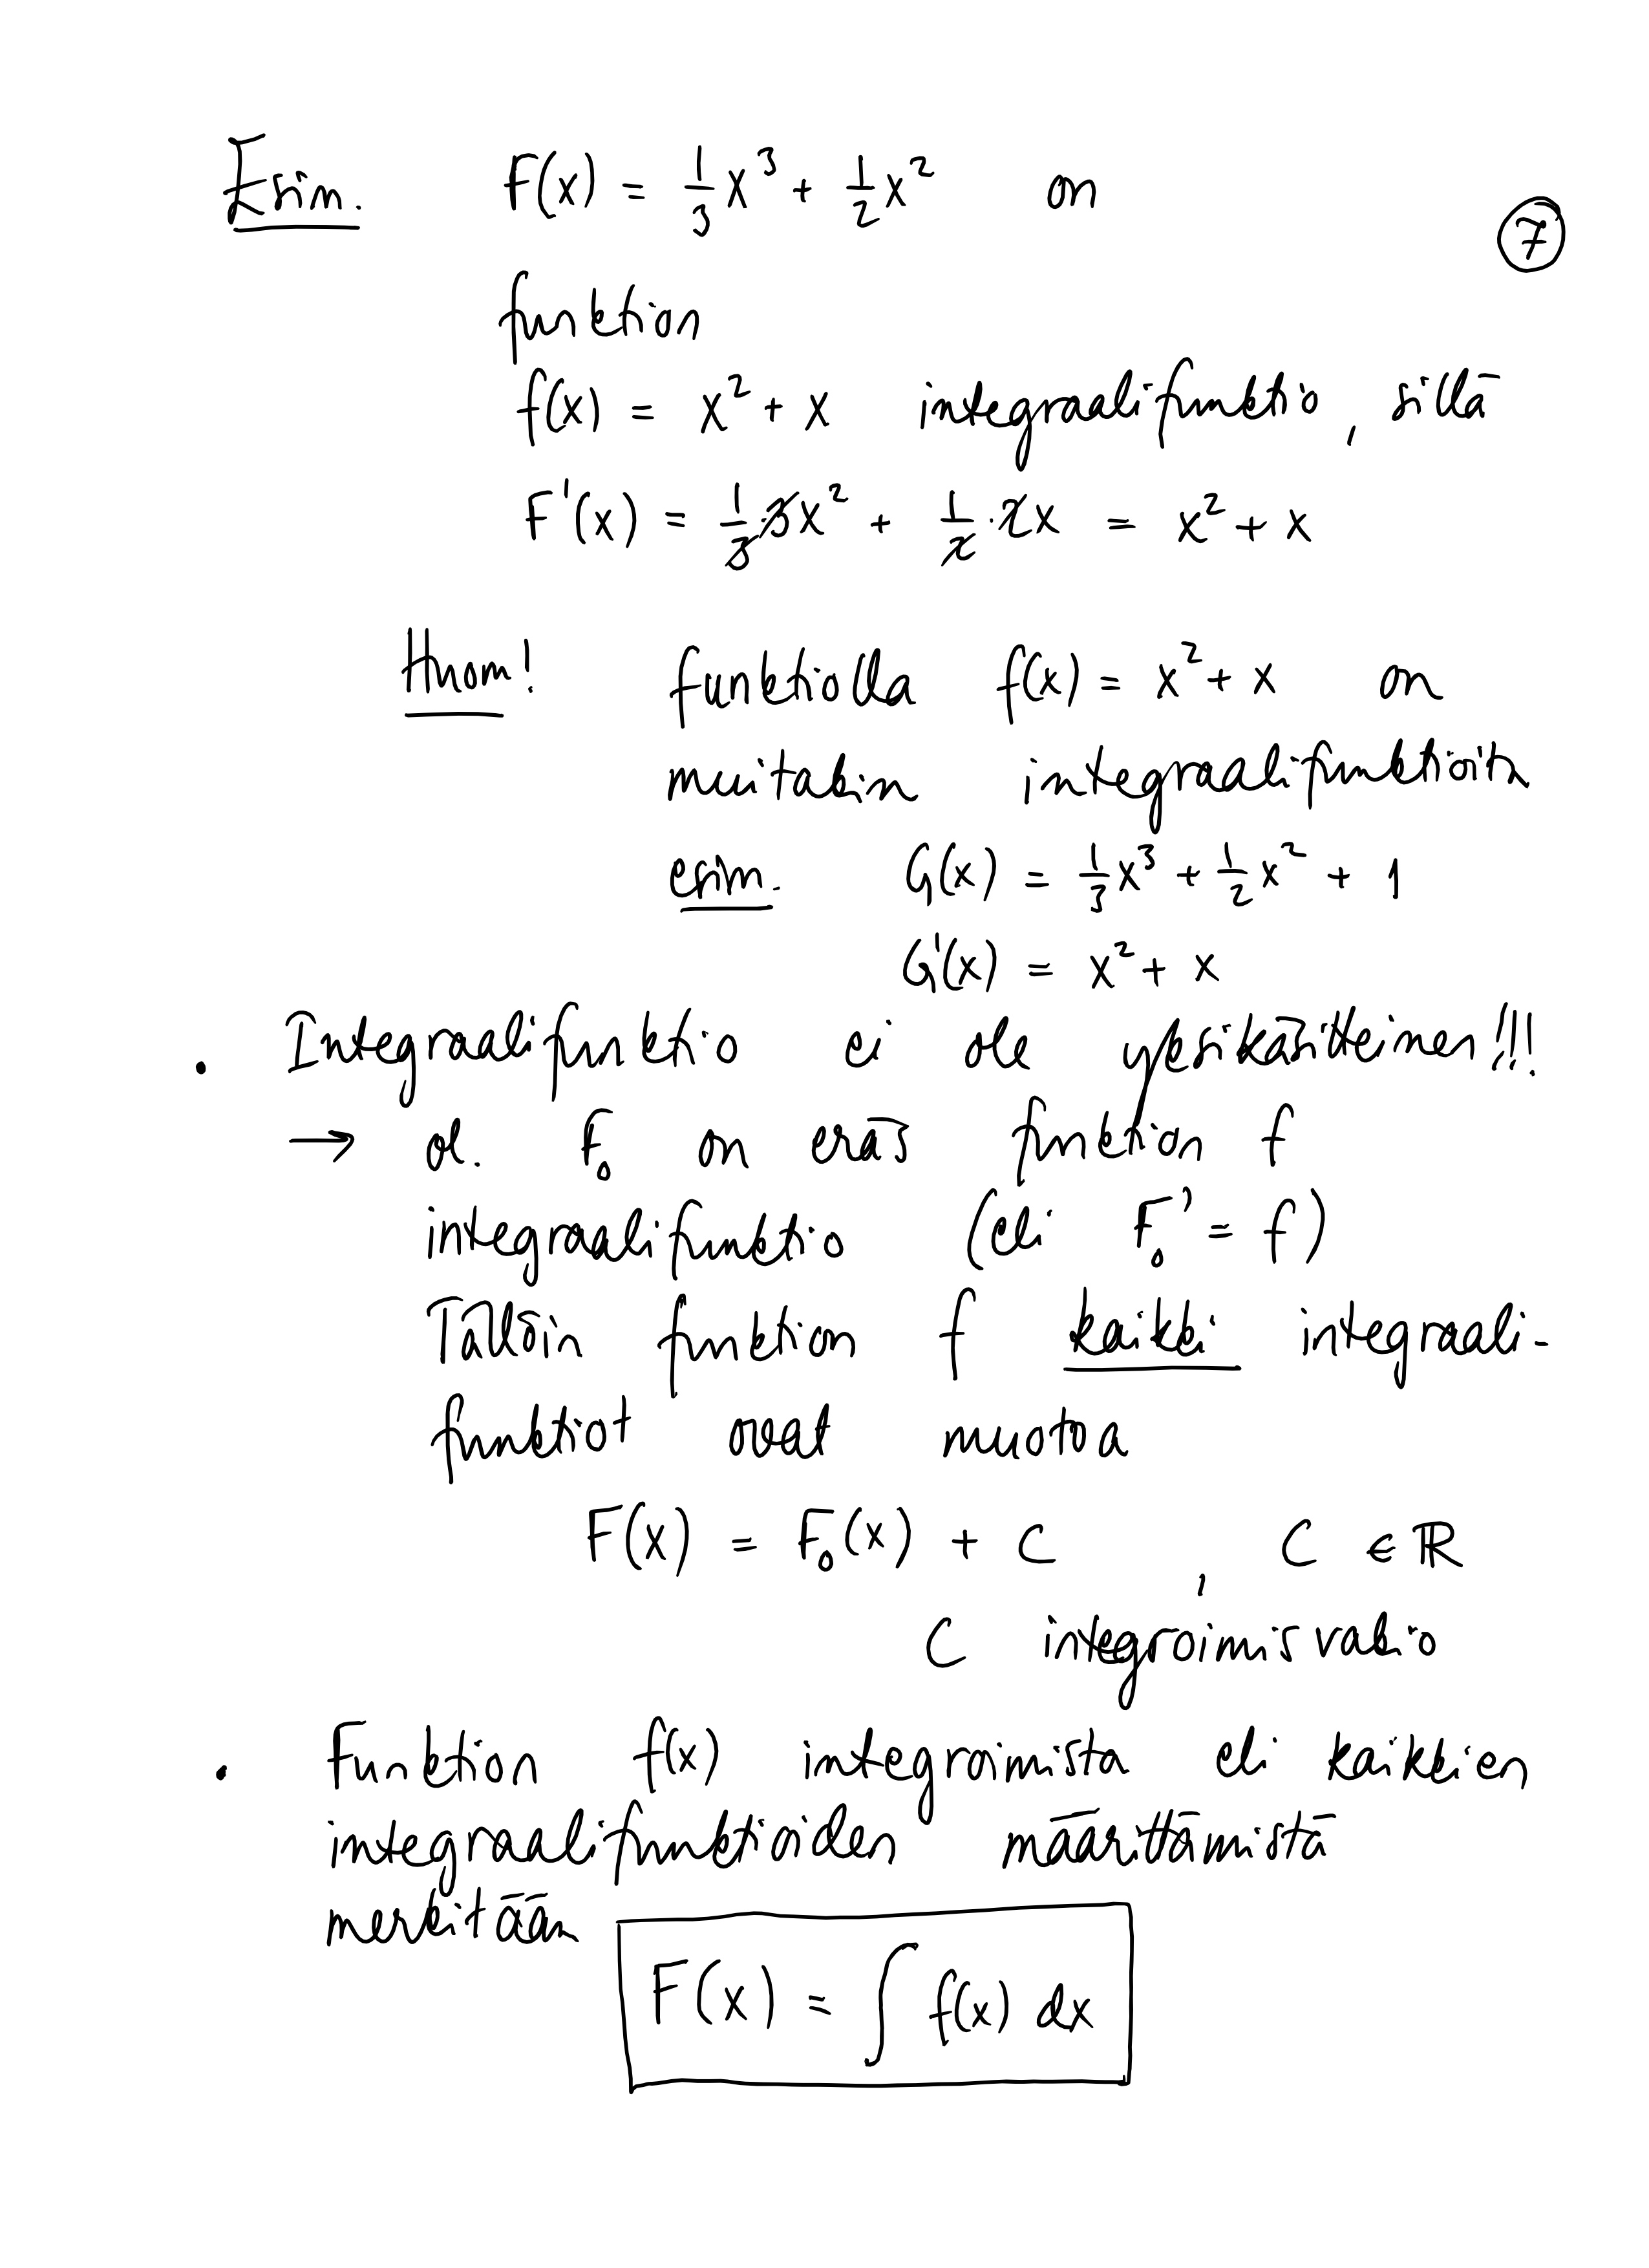 Esim. F(x) = 1/3 x³ + 1/2 x² on
7
funktion
f(x) = x² + x integraalifunktio, sillä
F'(x) = 1/3 · 3x² + 1/2 · 2x = x² + x
Huom! funktiolla f(x) = x² + x on
muitakin integraalifunktioita
esim. G(x) = 1/3 x³ + 1/2 x² + 1
G'(x) = x² + x
• Integraalifunktio ei ole yksikäsitteinen!!!
→ ol. F₀ on eräs funktion f
integraalifunktio (eli F₀' = f)
Tällöin funktion f kaikki integraali-
funktiot ovat muotoa
F(x) = F₀(x) + C , C ∈ ℝ
C integroimisvakio
• Funktion f(x) integroimista eli kaikkien
integraalifunktioiden määrittämistä
merkitään
F(x) = ∫ f(x) dx